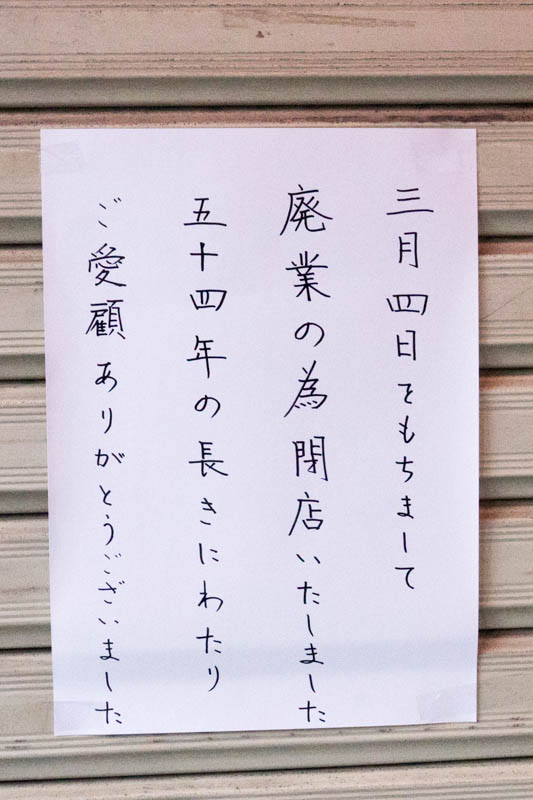 三月四日をもちまして
廃業の為閉店いたしました
五十四年の長きにわたり
ご愛顧ありがとうございました